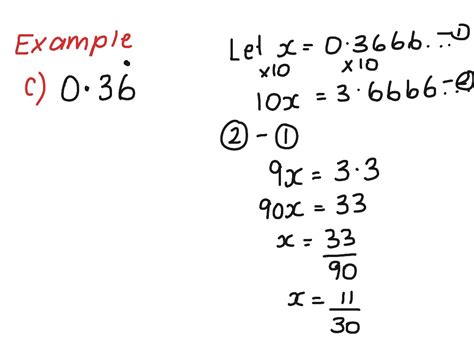 Example
c) 0.36̇
Let x = 0.3666... -①
×10 ×10
10x = 3.6666... -②
② - ①
9x = 3.3
90x = 33
x = 33/90
x = 11/30